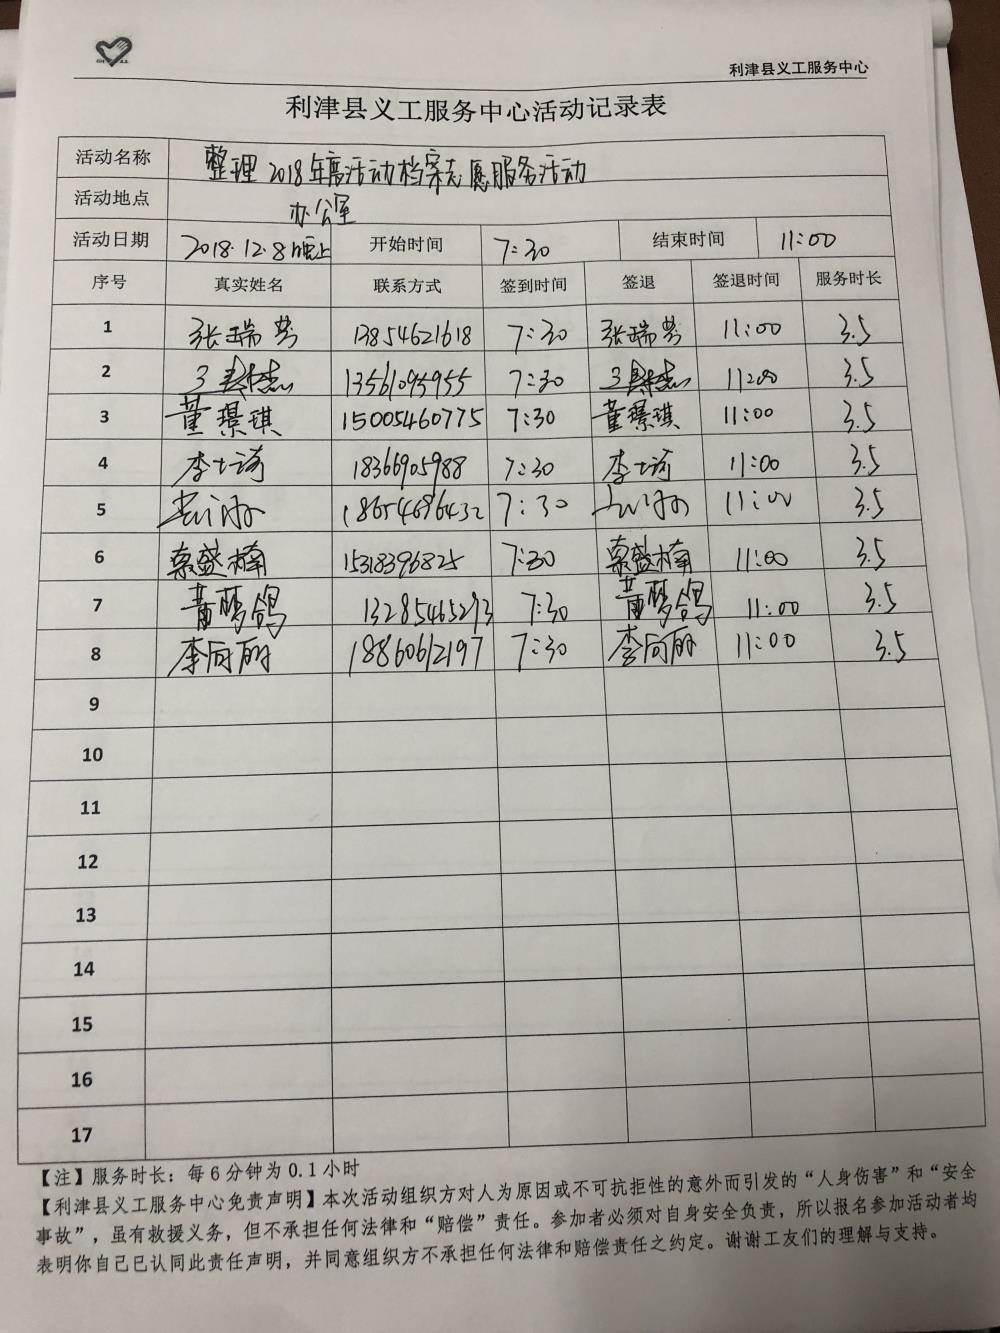 利津县义工服务中心
利津县义工服务中心活动记录表
活动名称 整理2018年度活动档案志愿服务活动
活动地点 办公室
活动日期 2018.12.8晚上 开始时间 7:30 结束时间 11:00
序号 真实姓名 联系方式 签到时间 签退 签退时间 服务时长
1 张瑞芳 13854621618 7:30 张瑞芳 11:00 3.5
2 13561095955 7:30 11:00 3.5
3 董璟琪 15005460775 7:30 董璟琪 11:00 3.5
4 李士琦 18366905988 7:30 李士琦 11:00 3.5
5 18654696432 7:30 11:00 3.5
6 綦盛楠 15318396825 7:30 綦盛楠 11:00 3.5
7 黄梦鸽 13285465293 7:30 黄梦鸽 11:00 3.5
8 李向丽 18860612197 7:30 李向丽 11:00 3.5
9
10
11
12
13
14
15
16
17
【注】服务时长：每6分钟为0.1小时
【利津县义工服务中心免责声明】本次活动组织方对人为原因或不可抗拒性的意外而引发的“人身伤害”和“安全
事故”，虽有救援义务，但不承担任何法律和“赔偿”责任。参加者必须对自身安全负责，所以报名参加活动者均
表明你自己已认同此责任声明，并同意组织方不承担任何法律和赔偿责任之约定。谢谢工友们的理解与支持。